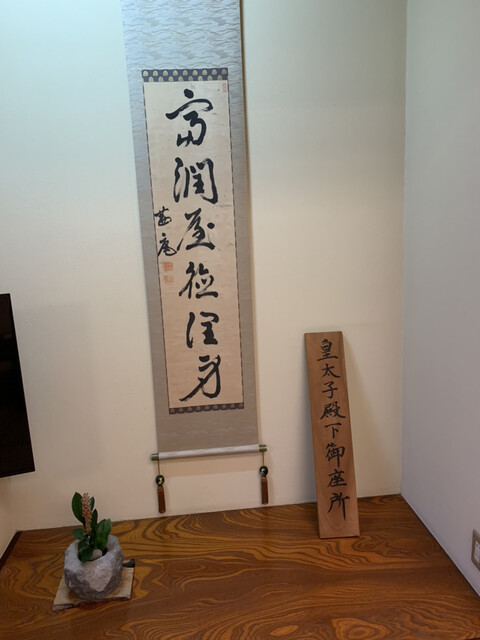 富潤屋徳潤身
皇太子殿下御座所